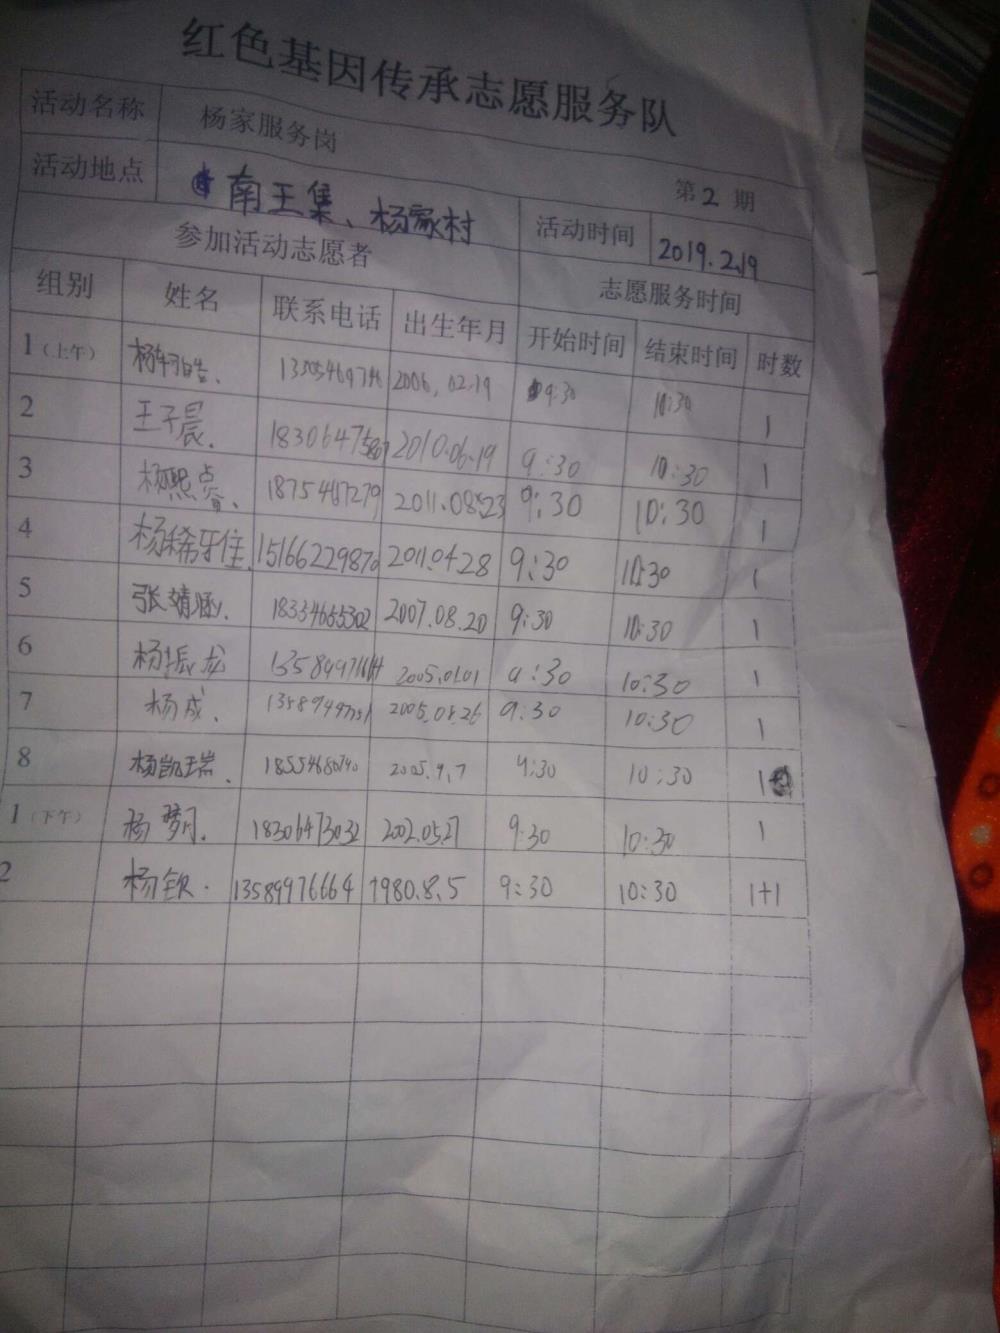 红色基因传承志愿服务队
活动名称 杨家服务岗 第2期
活动地点 南王集、杨家村 活动时间 2019.2.19
参加活动志愿者 志愿服务时间
组别 姓名 联系电话 出生年月 开始时间 结束时间 时数
1(上午) 2006.02.19 9:30 10:30 1
2 王子晨. 2010.06.19 9:30 10:30 1
3 杨熙 18754687279 2011.08.23 9:30 10:30 1
4 杨稀 15166229870 2011.04.28 9:30 10:30 1
5 张靖涵. 18354665302 2007.08.20 9:30 10:30 1
6 杨振龙 2005.01.01 9:30 10:30 1
7 杨成. 2005.08.26 9:30 10:30 1
8 杨凯瑞. 18554680740 2005.9.7 9:30 10:30 1
1(下午) 杨梦月. 18306473032 2002.05.27 9:30 10:30 1
2 杨钦. 13589976664 1980.8.5 9:30 10:30 1+1